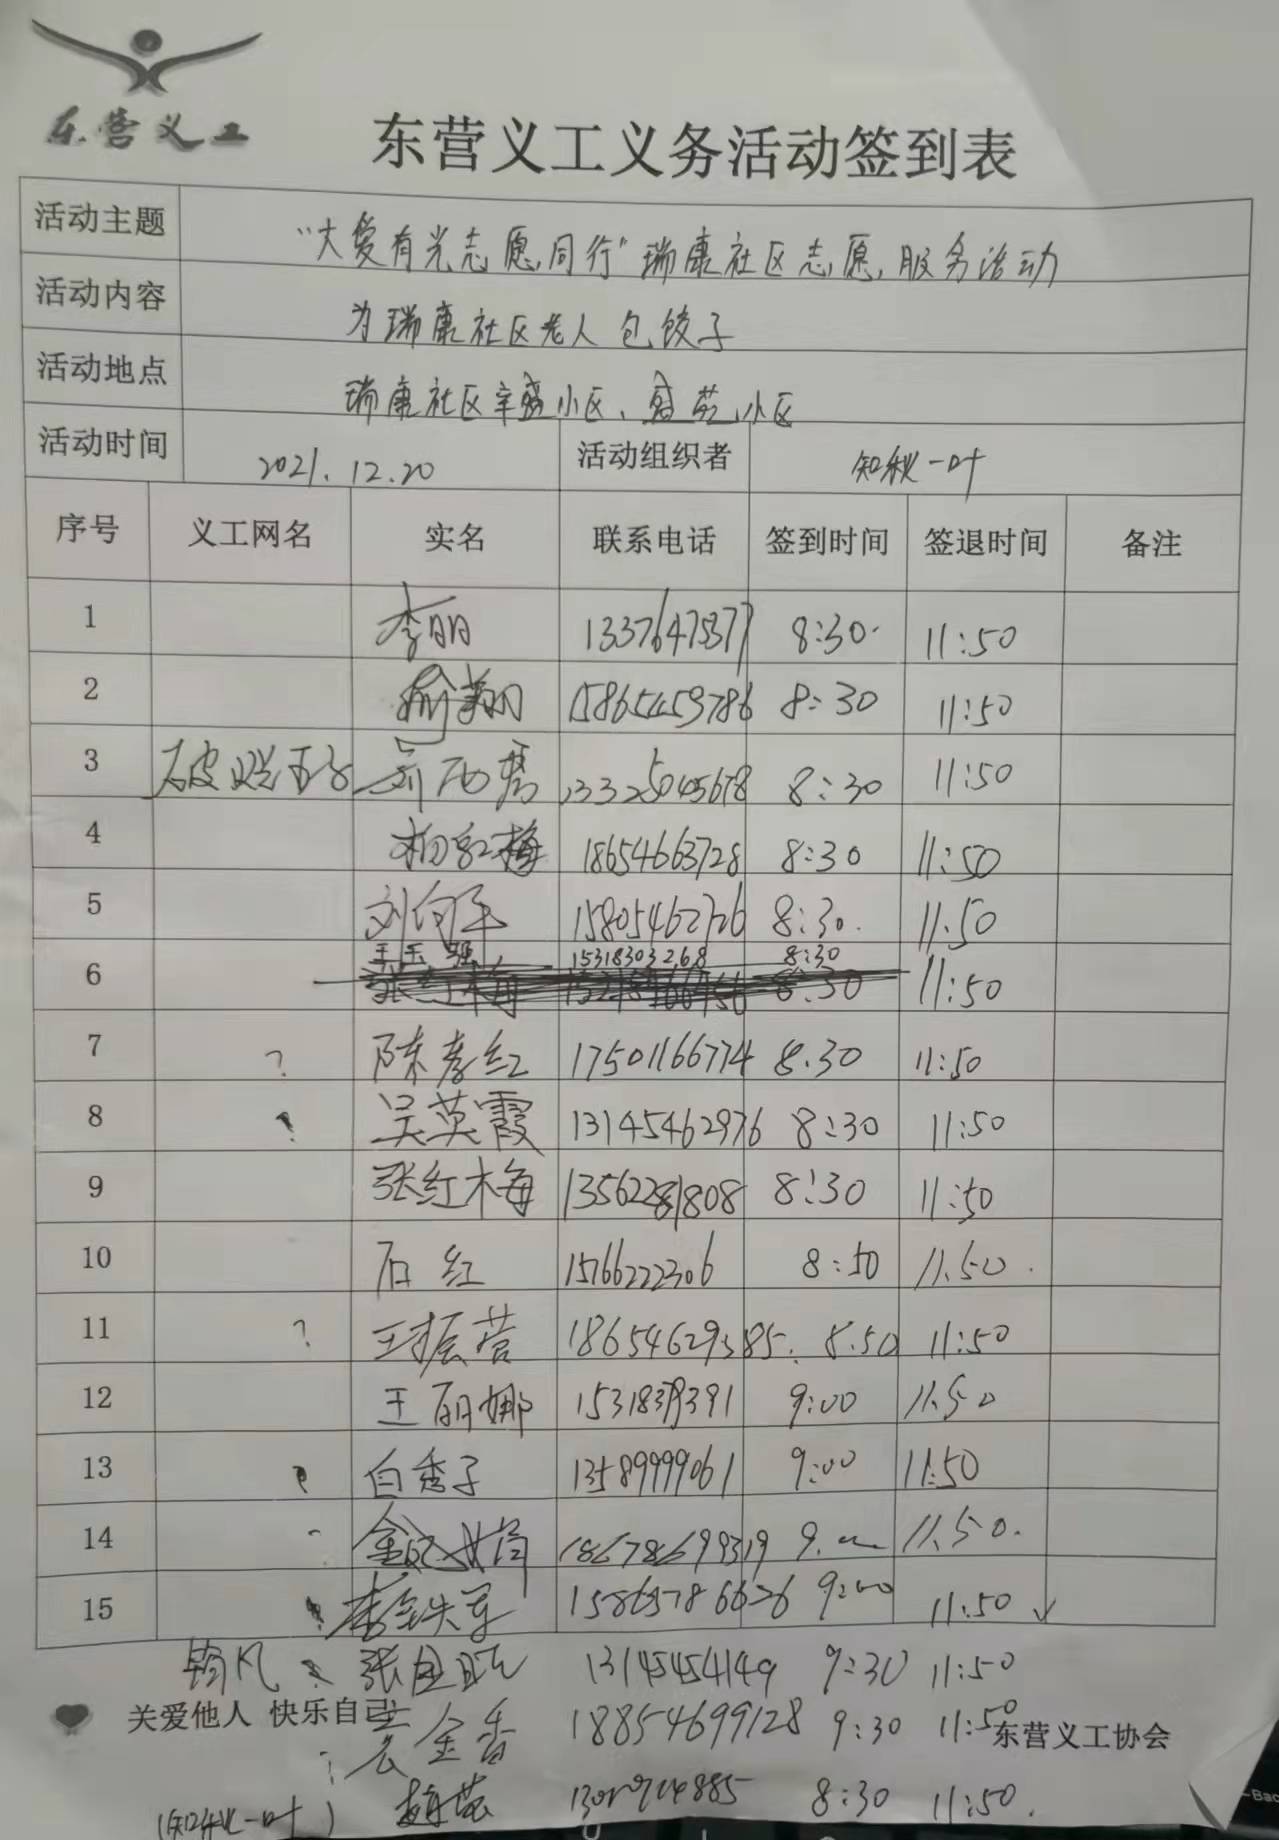 东营义工
东营义工义务活动签到表
活动主题 "大爱有光志愿同行"瑞康社区志愿服务活动
活动内容 为瑞康社区老人包饺子
活动地点 瑞康社区辛盛小区、盛苑小区
活动时间 2021.12.20 活动组织者 知秋一叶
序号 义工网名 实名 联系电话 签到时间 签退时间 备注
1 李丽 8:30 11:50
2 15865459786 8:30 11:50
3 8:30 11:50
4 杨红梅 18654663728 8:30 11:50
5 刘向军 15805462726 8:30. 11:50
王玉强 15318303268 8:30
6 11:50
7 ? 陈孝红 17501166774 8.30 11:50
8 吴英霞 13145462976 8:30 11:50
9 张红梅 8:30 11:50
10 石红 15166222306 8:50 11.50.
11 ? 王振营 8.50 11:50
12 王丽娜 9:00 11.50
13 白秀子 13589999061 9:00 11:50
14 18678699319 11.50.
15 9:00 11:50 ✓
13145454149 9:30 11:50
关爱他人 快乐自己
金香 18854699128 9:30 11:50
东营义工协会
(知秋一叶) 8:30 11:50.